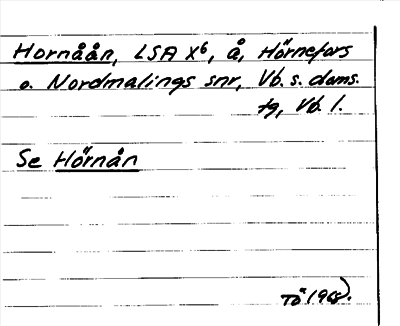 Hornåån, LSA X6, å, Hörnefors
o. Nordmalings snr, Vb. s. doms.
tg, Vb. l.
Se Hörnån
Tö 1968.